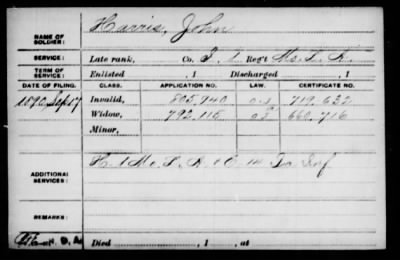 NAME OF SOLDIER: Harris, John
SERVICE: Late rank, Co. Reg't
TERM OF SERVICE: Enlisted , 1 Discharged , 1
DATE OF FILING. CLASS. APPLICATION NO. LAW. CERTIFICATE NO.
1890 Sep 17 Invalid, 805,940 719,632
Widow, 792,115 660,716
Minor,
ADDITIONAL SERVICES:
REMARKS:
Died , 1 , at